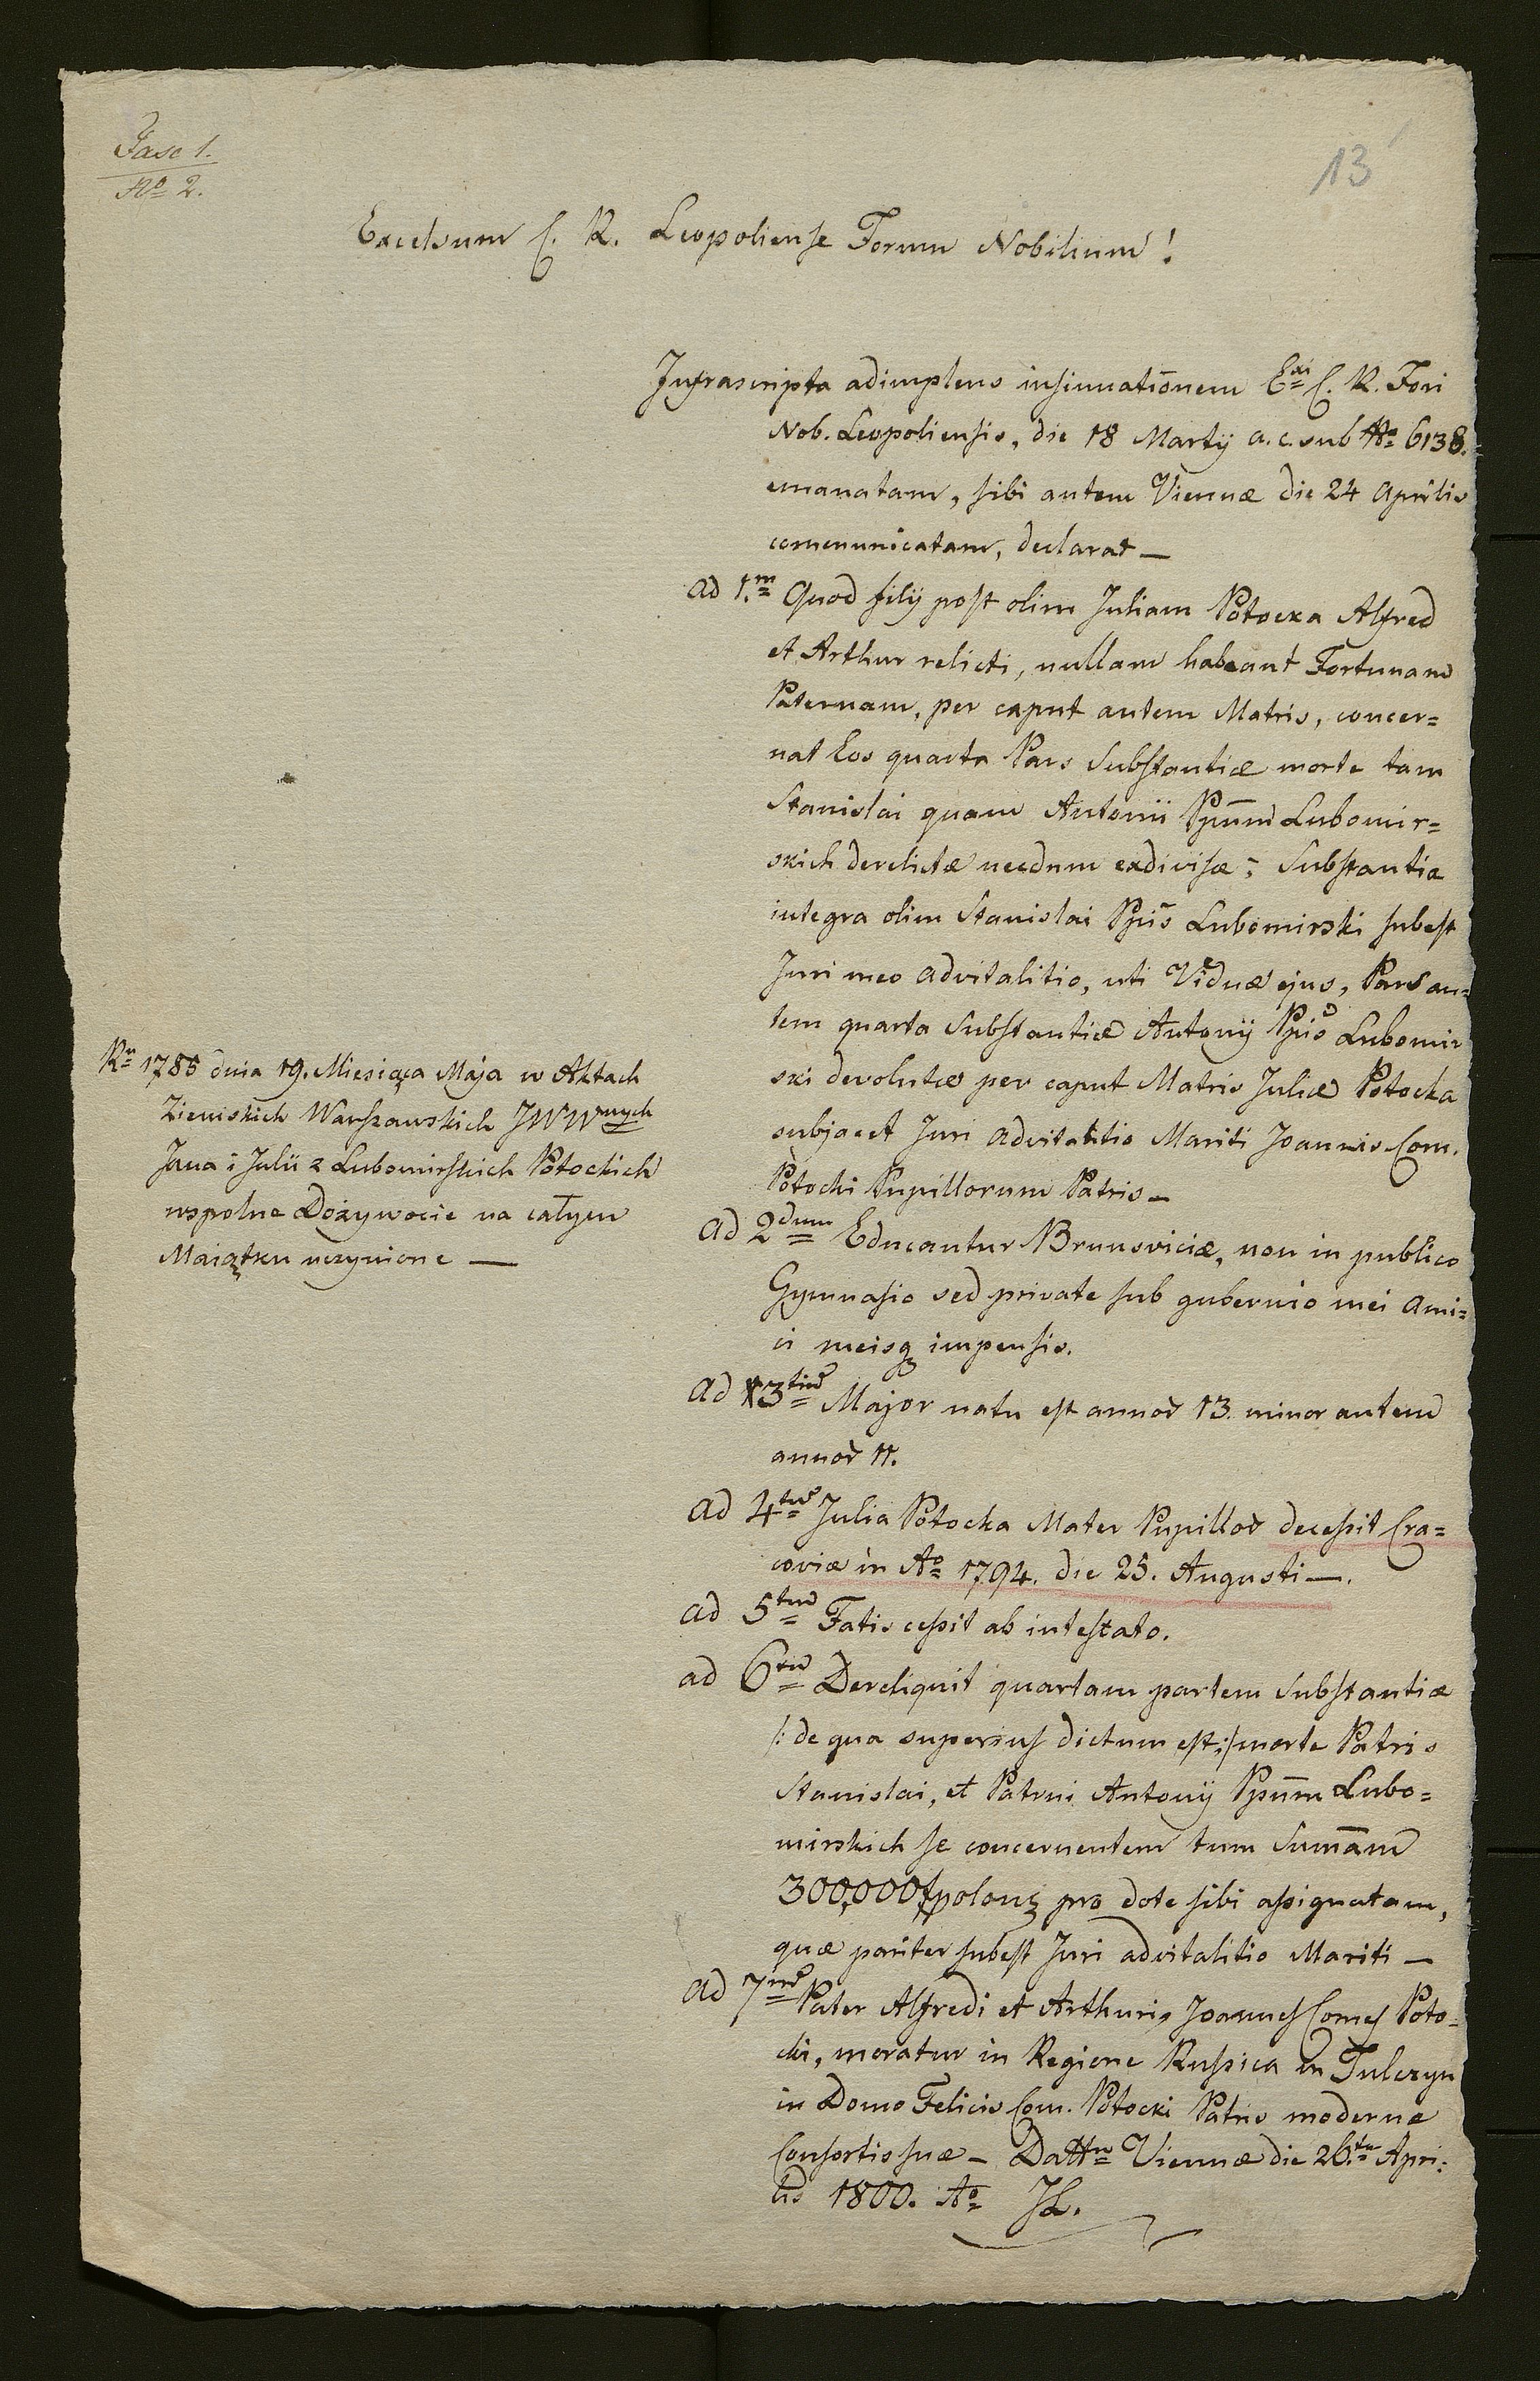 Fasc 1.
No 2.
13
Excelsum C. R. Leopoliense Forum Nobilium!
Infrascripta adimplens insinuationem Exi C. R. Fori
Nob. Leopoliensis, die 18 Martÿ a. c. sub No 6138.
emanatam, sibi autem Viennæ die 24 Aprilis
communicatam, declarat —
ad 1.m Quod filÿ post olim Juliam Potocka Alfred
et Arthur relicti, nullam habeant Fortunam
Paternam, per caput autem Matris, concer=
nat Eos quarta Pars Substantiæ morte tam
Stanislai quam Antonii Ppum̄ Lubomir=
skich derelictæ necdum exdivisæ; Substantia
integra olim Stanislai Ppis̄ Lubomirski subest
Juri meo advitalitio, uti Viduæ ejus, Pars au=
tem quarta Substantiæ Antonÿ Ppis Lubomir
ski devolutæ per caput Matris Juliæ Potocka
subjacet Juri advitalitio Mariti Joannis Com.
Potocki Pupillorum Patris —
Ru 1785 dnia 19. Miesiąca Maja w Aktach
Ziemskich Warszawskich JWWnych
Jana i Julii z Lubomirskich Potockich
wspolne Dozywocie na całym
Maiątku uczynione —
ad 2dum Educantur Brunsviciæ, non in publico
Gymnasio sed private sub gubernio mei Ami=
ci meisq impensis.
ad 3tium Major natu est annor 13. minor autem
annor 11.
ad 4tum Julia Potocka Mater Pupillor decessit Cra=
coviæ in Ao 1794. die 25. Augusti —.
ad 5tum Fatis cessit ab intestato.
ad 6tum Dereliquit quartam partem Substantiæ
/: de qua superius dictum est :/ morte Patris
Stanislai, et Patrui Antonÿ Ppum̄ Lubo=
mirskich se concernentem tum Sumam̄
300,000 f polon pro dote sibi assignatam,
quæ pariter subest Juri advitalitio Mariti —
ad 7mum Pater Alfredi et Arthuris Joannes Comes Poto=
cki, moratur in Regione Russica in Tulczyn
in Domo Felicis Com. Potocki Patris modernæ
Consortis suæ — Dattu Viennæ die 26.ta Apri=
lis 1800. Ao JL.